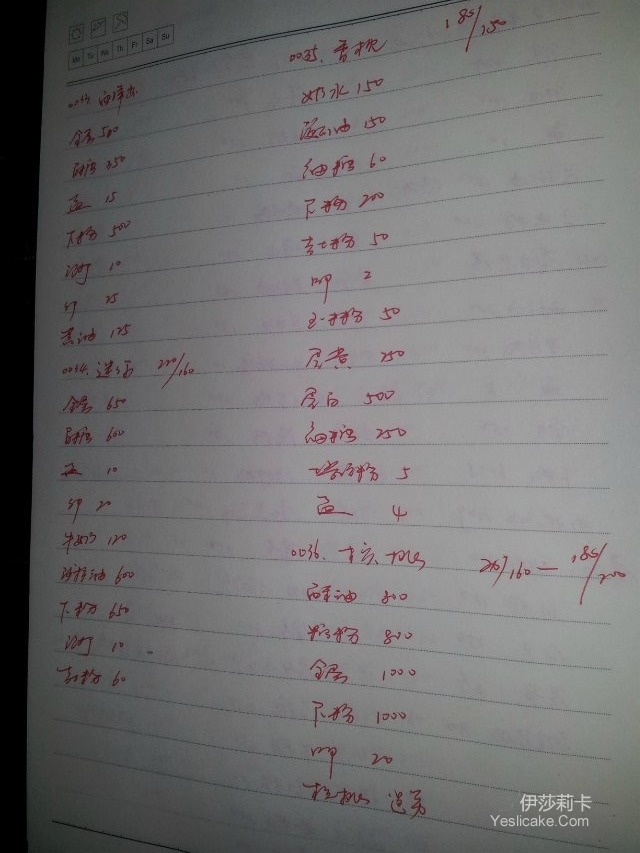 Mo Tu We Th Fr Sa Su
全蛋 500
砂糖 350
盐 15
下粉 500
10
SP 25
黄油 125
0034. 220/160
全蛋 650
砂糖 600
盐 10
SP 20
牛奶 120
色拉油 600
下粉 650
10
60
0035. 香枕 185/150
奶水 150
油 150
细糖 60
下粉 200
吉士粉 50
2
玉米粉 50
蛋黄 250
蛋白 500
细糖 250
塔塔粉 5
盐 4
0036. 核桃 160 — 185/200
酥油 800
糖粉 800
全蛋 1000
下粉 1000
20
核桃 适量
伊莎莉卡
Yeslicake.Com